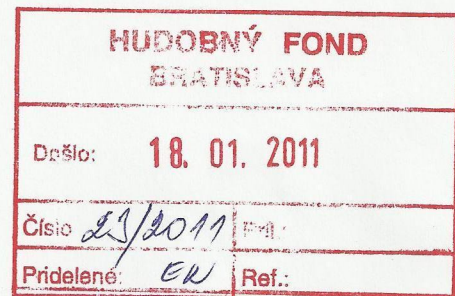 HUDOBNÝ FOND
BRATISLAVA
Došlo: 18. 01. 2011
Číslo 23/2011 Príl.:
Pridelené: Ref.: